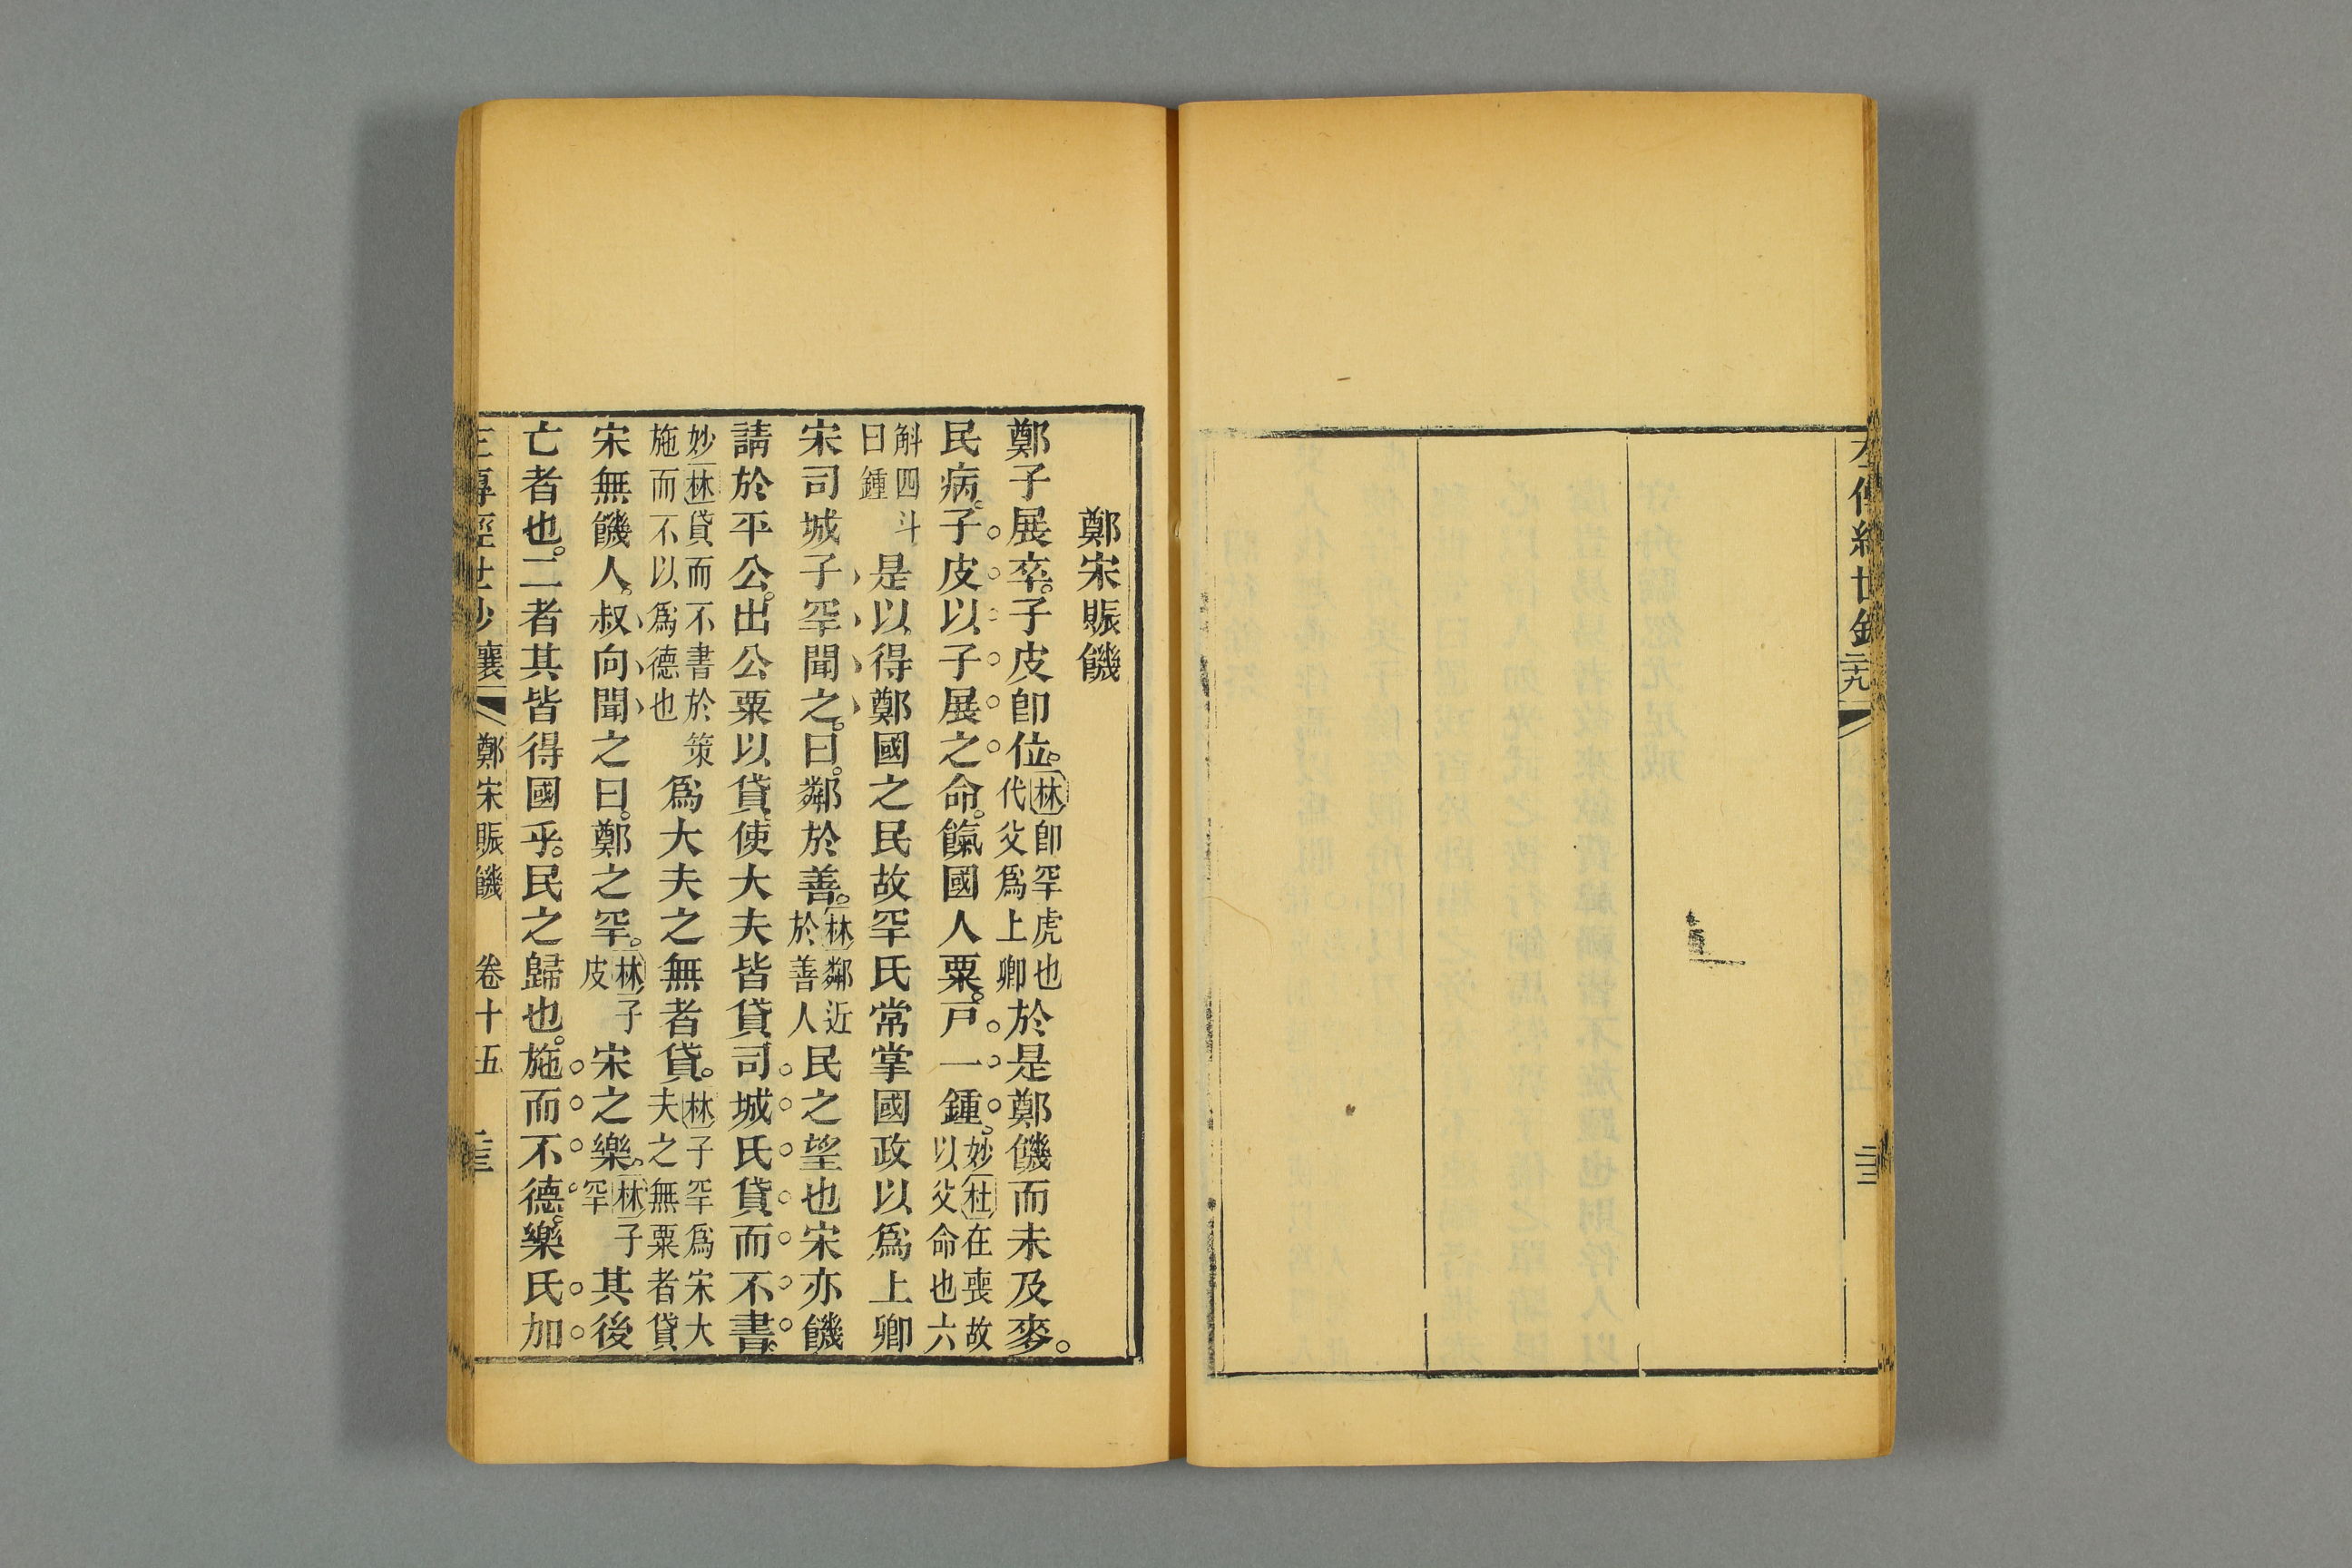 鄭宋賑饑
鄭子展卒。子皮卽位。林卽罕虎也代父爲上卿於是鄭饑而未及麥。
民病。子皮以子展之命。餼國人粟。戸一鍾。妙杜在喪故以父命也六
斛四斗曰鍾是以得鄭國之民故罕氏常掌國政以爲上卿
宋司城子罕聞之。曰。鄰於善。林鄰近於善人民之望也宋亦饑
請於平公。出公粟以貸使大夫皆貸司城氏貸而不書
妙林貸而不書於策施而不以爲德也爲大夫之無者貸。林子罕爲宋大夫之無粟者貸
宋無饑人。叔向聞之曰。鄭之罕。林子皮宋之樂。林子罕其後
亡者也。二者其皆得國乎。民之歸也。施而不德。樂氏加
襄 鄭宋賑饑 卷十五